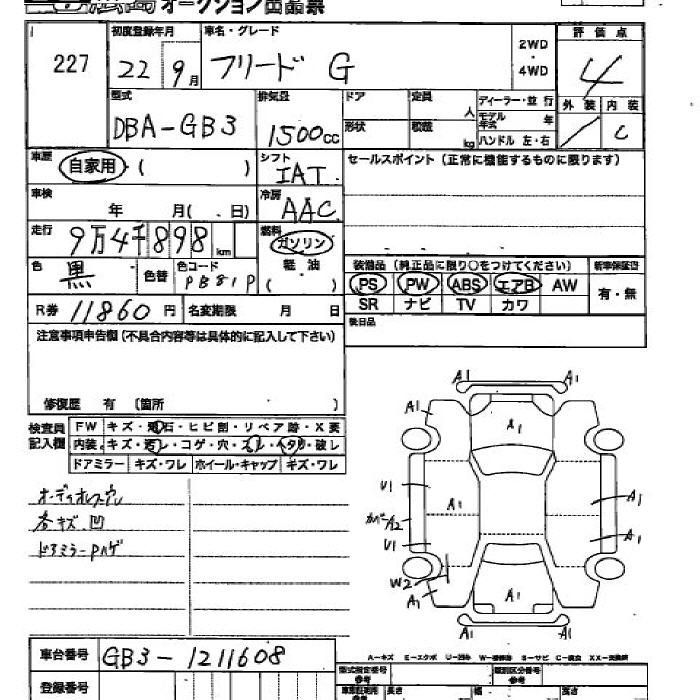 オークション出品票
227
初度登録年月 22 9月
車名・グレード フリード G
2WD ・ 4WD
評価点 4
外装 内装 C
型式 DBA-GB3
排気量 1500cc
ドア 定員 人
形状 積載 kg
ディーラー・並行
モデル年式 年
ハンドル 左・右
車歴 自家用・( )
シフト IAT
セールスポイント(正常に機能するものに限ります)
車検 年 月( 、日)
冷房 AAC
走行 9万4千898km
燃料 ガソリン 軽油 ( )
色 黒 色替 色コード PB81P
装備品(純正品に限り○をつけてください) 新車保証書
PS PW ABS エアB AW 有・無
SR ナビ TV カワ
R券 11860円 名変期限 月 日
後日品
注意事項申告欄(不具合内容等は具体的に記入して下さい)
修復歴 有 (箇所 )
検査員記入欄
FW キズ・飛石・ヒビ割・リペア跡・X要
内装 キズ・汚レ・コゲ・穴・スレ・ヘタリ・破レ
ドアミラー キズ・ワレ ホイール・キャップ キズ・ワレ
オーディオレス
各キズ凹
ドアミラーPハゲ
A1 A1
A1 A1 A1
U1 A1 A1
カバーA2
U1 A1
W2
A1 A1
A1 A1
A-キズ E-エクボ U-凹み W-補修跡 S-サビ C-腐食 XX-交換済
車台番号 GB3-1211608
登録番号
型式指定番号 参考
類別区分番号 参考
長さ 幅 高さ